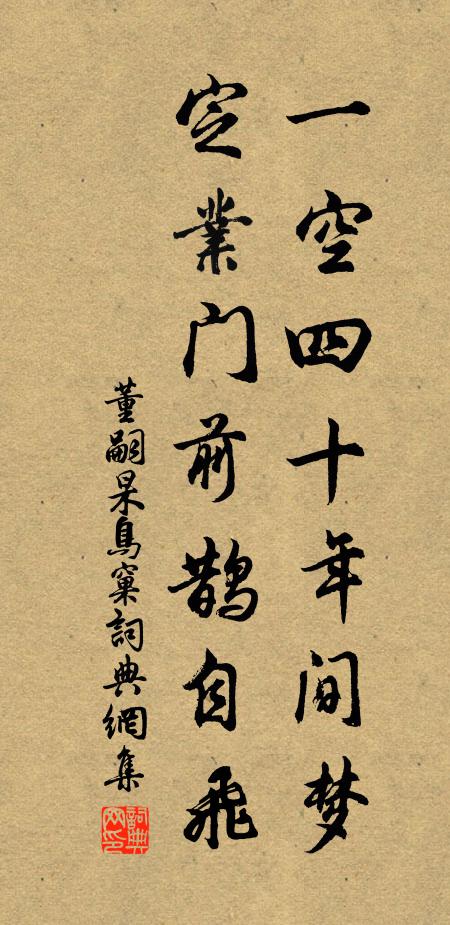 一空四十年间梦
定業门前鹊自飛
董嗣杲鳥窠詞典網集
詞典网印